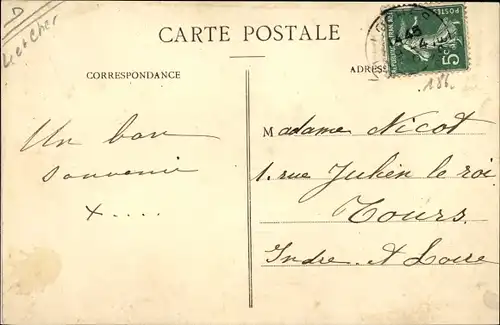 D
L et Cher
CARTE POSTALE
CORRESPONDANCE
ADRESSE
POSTES
5c
186.
Un bon
souvenir
x....
Madame Nicot
1. rue Julien le roi
Tours.
Indre. et Loire